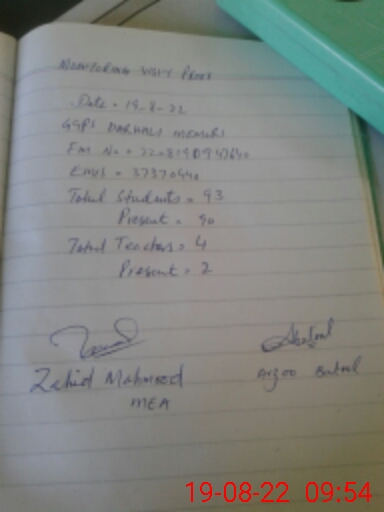 MONITORING VISIT PROOF
Date = 19-8-22
GGPS DARHALI
EMIS = 37370440
Total Students = 93
Present = 90
Total Teachers = 4
Present = 2
Zahid Mahmood
MEA
Arzoo Batool
19-08-22 09:54